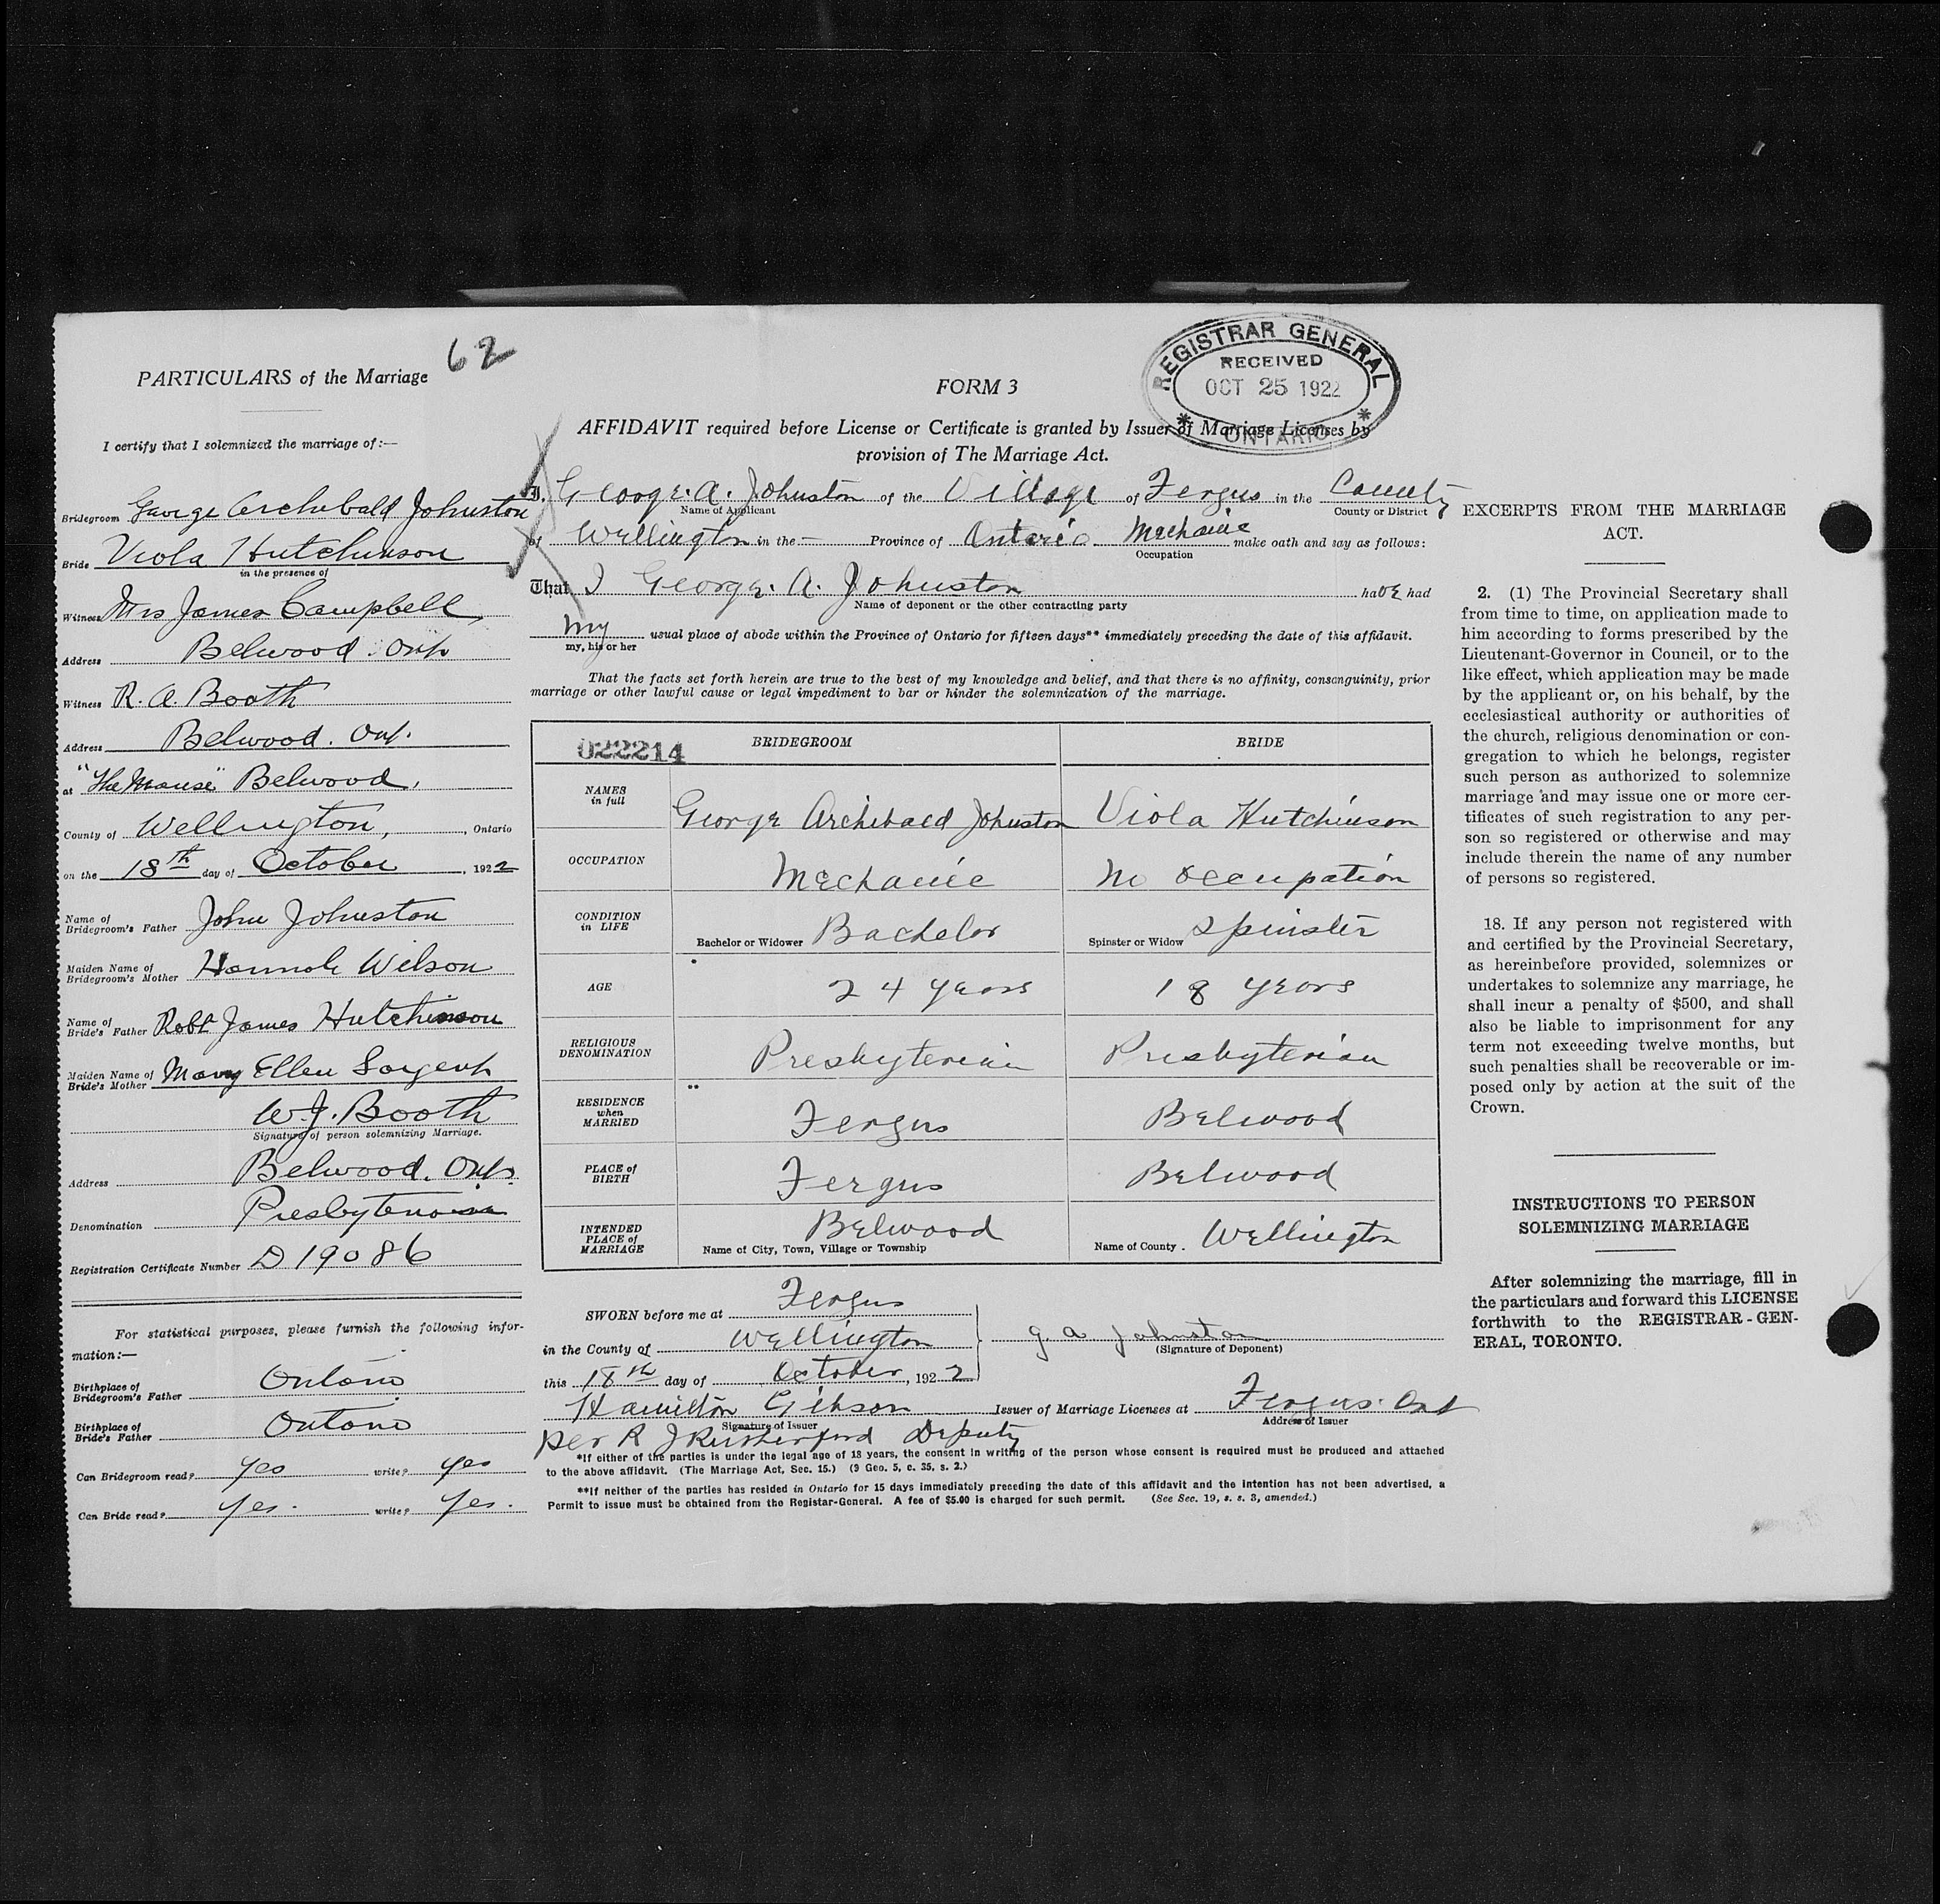 62
PARTICULARS of the Marriage
I certify that I solemnized the marriage of:—
Bridegroom George Archibald Johnston
Bride Viola Hutchinson
in the presence of
Witness Mrs James Campbell
Address Belwood. Ont.
Witness R. A. Booth
Address Belwood. Ont.
at "The Manse" Belwood,
County of Wellington, , Ontario
on the 18th day of October , 1922
Name of
Bridegroom's Father John Johnston
Maiden Name of
Bridegroom's Mother Hannah Wilson
Name of
Bride's Father Robt James Hutchinson
Maiden Name of
Bride's Mother Mary Ellen Sargent
W. J. Booth
Signature of person solemnizing Marriage.
Address Belwood. Ont.
Denomination Presbyterian
Registration Certificate Number D 19086
For statistical purposes, please furnish the following infor-
mation:—
Birthplace of
Bridegroom's Father Ontario
Birthplace of
Bride's Father Ontario
Can Bridegroom read? yes write? yes
Can Bride read? Yes. write? Yes.
REGISTRAR GENERAL
RECEIVED
OCT 25 1922
* ONTARIO *
FORM 3
AFFIDAVIT required before License or Certificate is granted by Issuer of Marriage Licenses by
provision of The Marriage Act.
I, George. A. Johnston of the Village of Fergus in the County
Name of Applicant County or District
of Wellington in the — Province of Ontario Mechanic make oath and say as follows:
Occupation
That I George. A. Johnston have had
Name of deponent or the other contracting party
my usual place of abode within the Province of Ontario for fifteen days** immediately preceding the date of this affidavit.
my, his or her
That the facts set forth herein are true to the best of my knowledge and belief, and that there is no affinity, consanguinity, prior
marriage or other lawful cause or legal impediment to bar or hinder the solemnization of the marriage.
022214 BRIDEGROOM BRIDE
NAMES
in full George Archibald Johnston Viola Hutchinson
OCCUPATION Mechanic No occupation
CONDITION
in LIFE Bachelor or Widower Bachelor Spinster or Widow Spinster
AGE 24 years 18 years
RELIGIOUS
DENOMINATION Presbyterian Presbyterian
RESIDENCE
when
MARRIED Fergus Belwood
PLACE of
BIRTH Fergus Belwood
INTENDED
PLACE of
MARRIAGE Belwood Wellington
Name of City, Town, Village or Township Name of County.
SWORN before me at Fergus
in the County of Wellington G A Johnston
(Signature of Deponent)
this 18th day of October, 1922
Hamilton Gibson Issuer of Marriage Licenses at Fergus. Ont
Signature of Issuer Address of Issuer
per R J Rutherford Deputy
*If either of the parties is under the legal age of 18 years, the consent in writing of the person whose consent is required must be produced and attached
to the above affidavit. (The Marriage Act, Sec. 15.) (9 Geo. 5, c. 35, s. 2.)
**If neither of the parties has resided in Ontario for 15 days immediately preceding the date of this affidavit and the intention has not been advertised, a
Permit to issue must be obtained from the Registar-General. A fee of $5.00 is charged for such permit. (See Sec. 19, s. s. 3, amended.)
EXCERPTS FROM THE MARRIAGE
ACT.
2. (1) The Provincial Secretary shall
from time to time, on application made to
him according to forms prescribed by the
Lieutenant-Governor in Council, or to the
like effect, which application may be made
by the applicant or, on his behalf, by the
ecclesiastical authority or authorities of
the church, religious denomination or con-
gregation to which he belongs, register
such person as authorized to solemnize
marriage and may issue one or more cer-
tificates of such registration to any per-
son so registered or otherwise and may
include therein the name of any number
of persons so registered.
18. If any person not registered with
and certified by the Provincial Secretary,
as hereinbefore provided, solemnizes or
undertakes to solemnize any marriage, he
shall incur a penalty of $500, and shall
also be liable to imprisonment for any
term not exceeding twelve months, but
such penalties shall be recoverable or im-
posed only by action at the suit of the
Crown.
INSTRUCTIONS TO PERSON
SOLEMNIZING MARRIAGE
After solemnizing the marriage, fill in
the particulars and forward this LICENSE
forthwith to the REGISTRAR-GEN-
ERAL, TORONTO.